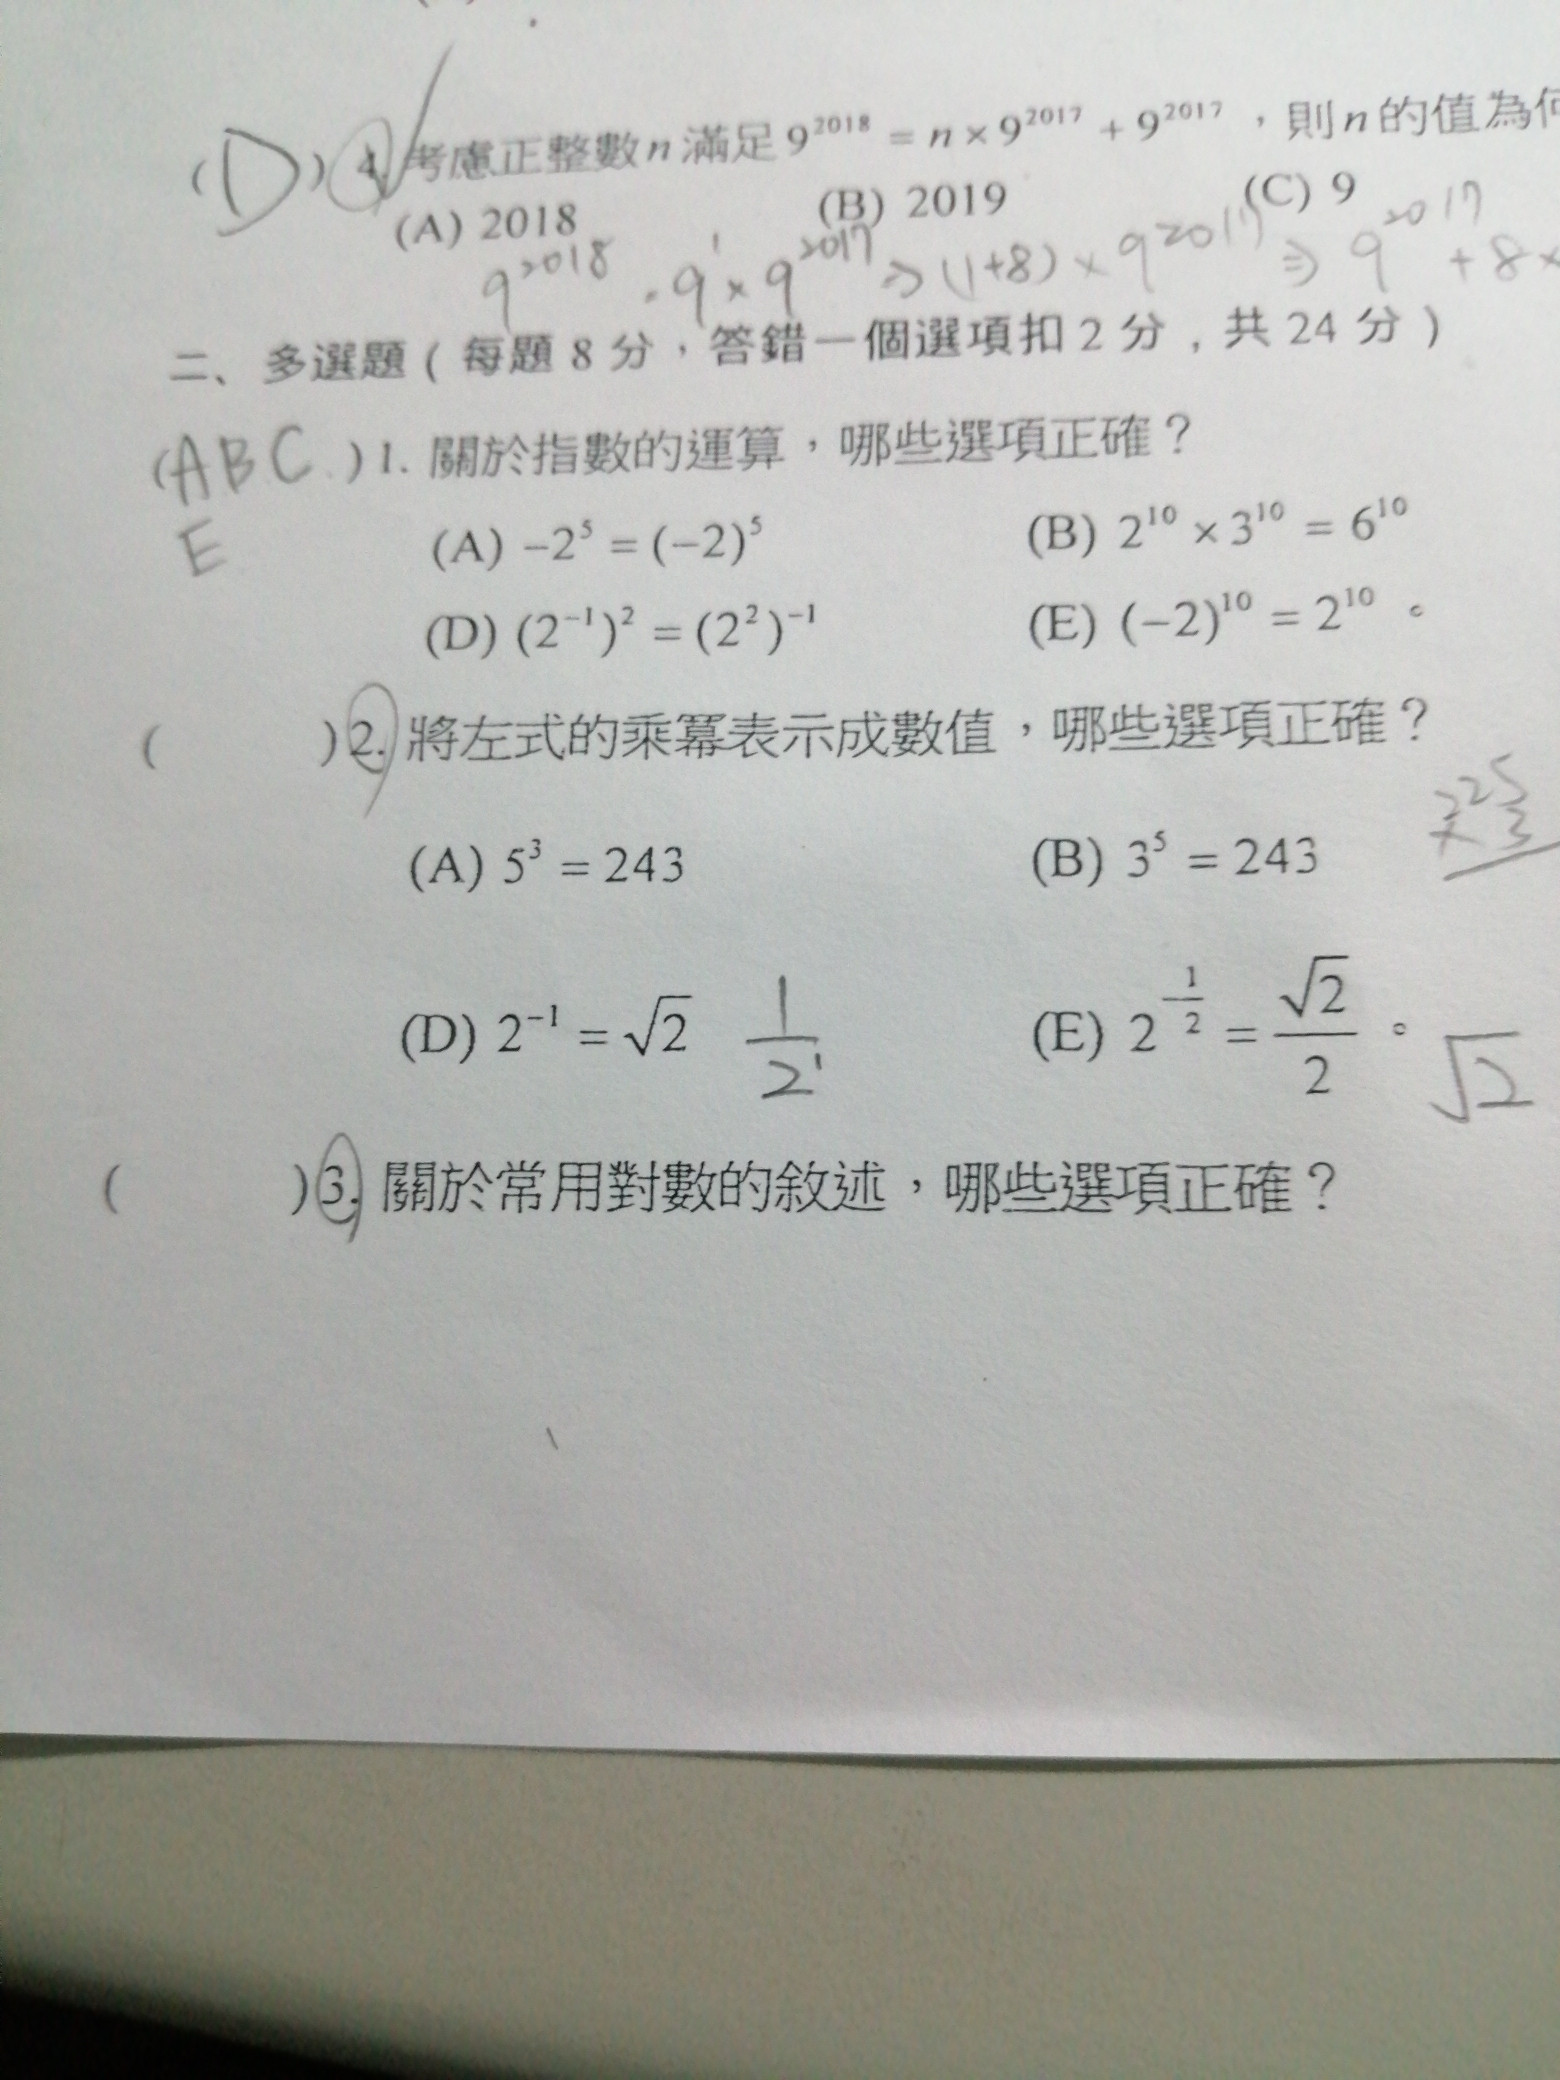 (D) 4. 考慮正整數n滿足 9^2018 = n × 9^2017 + 9^2017，則n的值為何
(A) 2018 (B) 2019 (C) 9
9^2018 = 9^1 × 9^2017 ⇒ (1+8) × 9^2017 ⇒ 9^2017 + 8 ×
二、多選題 ( 每題 8 分，答錯一個選項扣 2 分 , 共 24 分 )
(ABC ) 1. 關於指數的運算，哪些選項正確？
E
(A) −2^5 = (−2)^5 (B) 2^10 × 3^10 = 6^10
(D) (2^−1)^2 = (2^2)^−1 (E) (−2)^10 = 2^10 。
( ) 2. 將左式的乘冪表示成數值，哪些選項正確？
(A) 5^3 = 243 (B) 3^5 = 243
(D) 2^−1 = √2 1/2^1 (E) 2^−1/2 = √2/2 。 √2
( ) 3. 關於常用對數的敘述，哪些選項正確？